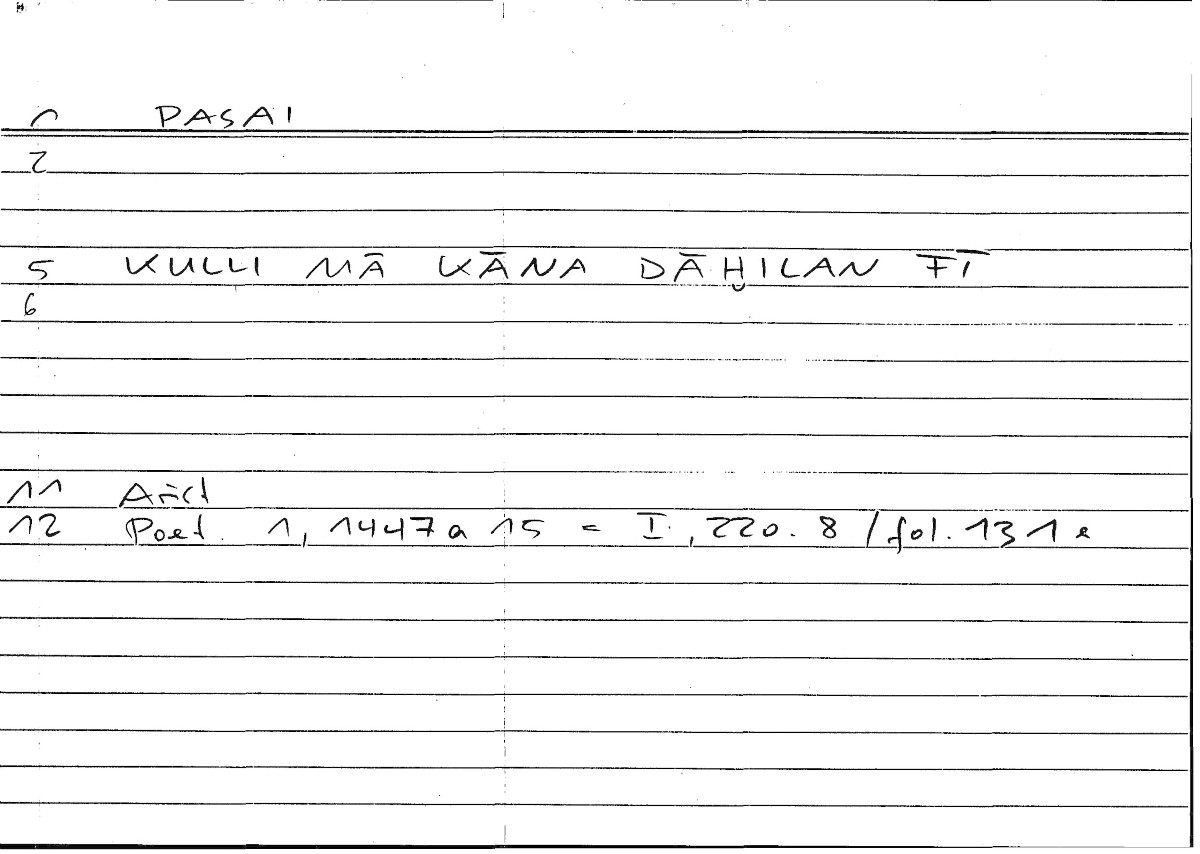 1 PASAI
2
5 KULLI MĀ KĀNA DĀḪILAN FĪ
6
11 Arist
12 Poet. 1, 1447a 15 = I, 220.8 / fol. 131a